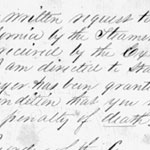 written request to
by the Steamer
received by the
I am directed to sta
has been grant
condition that you
penalty of death,